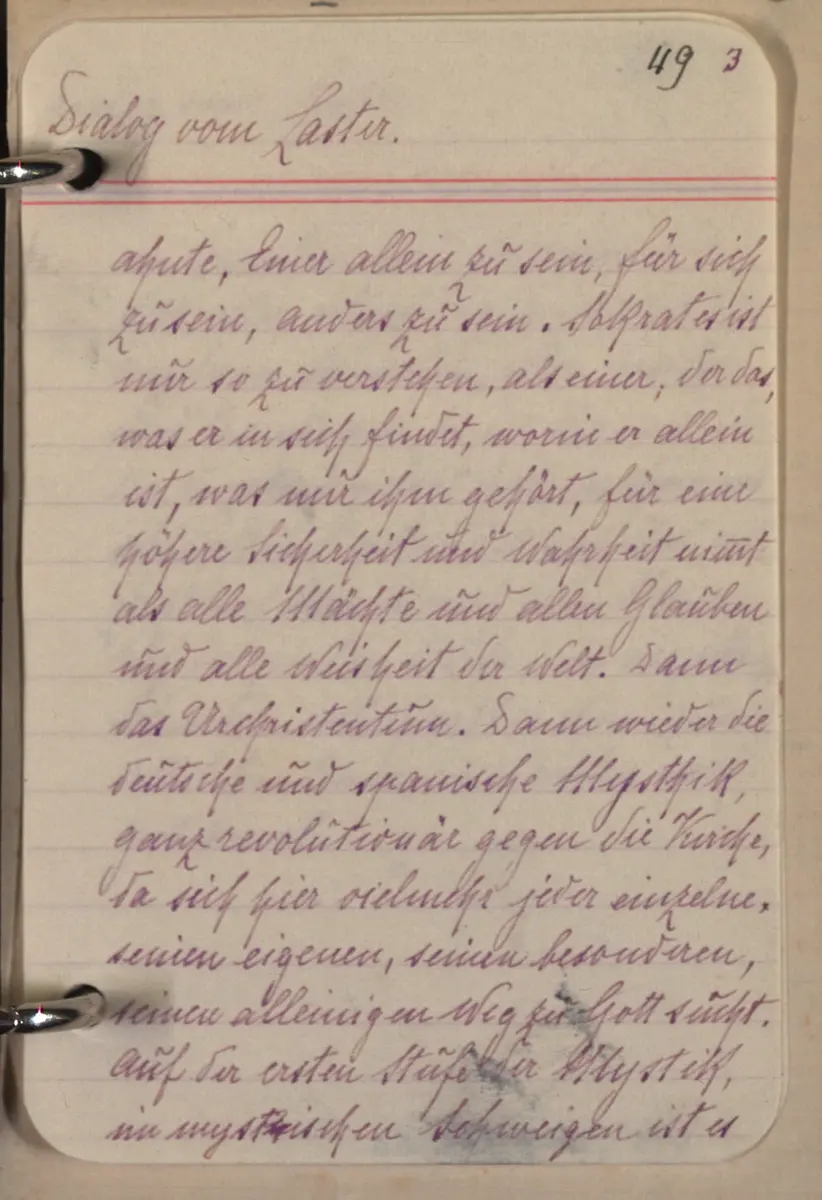 49 3
Dialog vom Laster.
ahnte, Einer allein zu sein, für sich
zu sein, anders zu sein. Sokrates ist
nur so zu verstehen, als einer, der das,
was er in sich findet, worin er allein
ist, was nur ihm gehört, für eine
höhere Sicherheit und Wahrheit nim̅t
als alle Mächte und allen Glauben
und alle Weisheit der Welt. Dann
das Urchristentum. Dann wieder die
deutsche und spanische Mysthik,
ganz revolutionär gegen die Kirche,
da sich hier vielmehr jeder einzelne
seinen eigenen, seinen besonderen,
seinen alleinigen Weg zu Gott sucht.
Auf der ersten Stufe der Mystik,
im mystischen Schweigen ist es